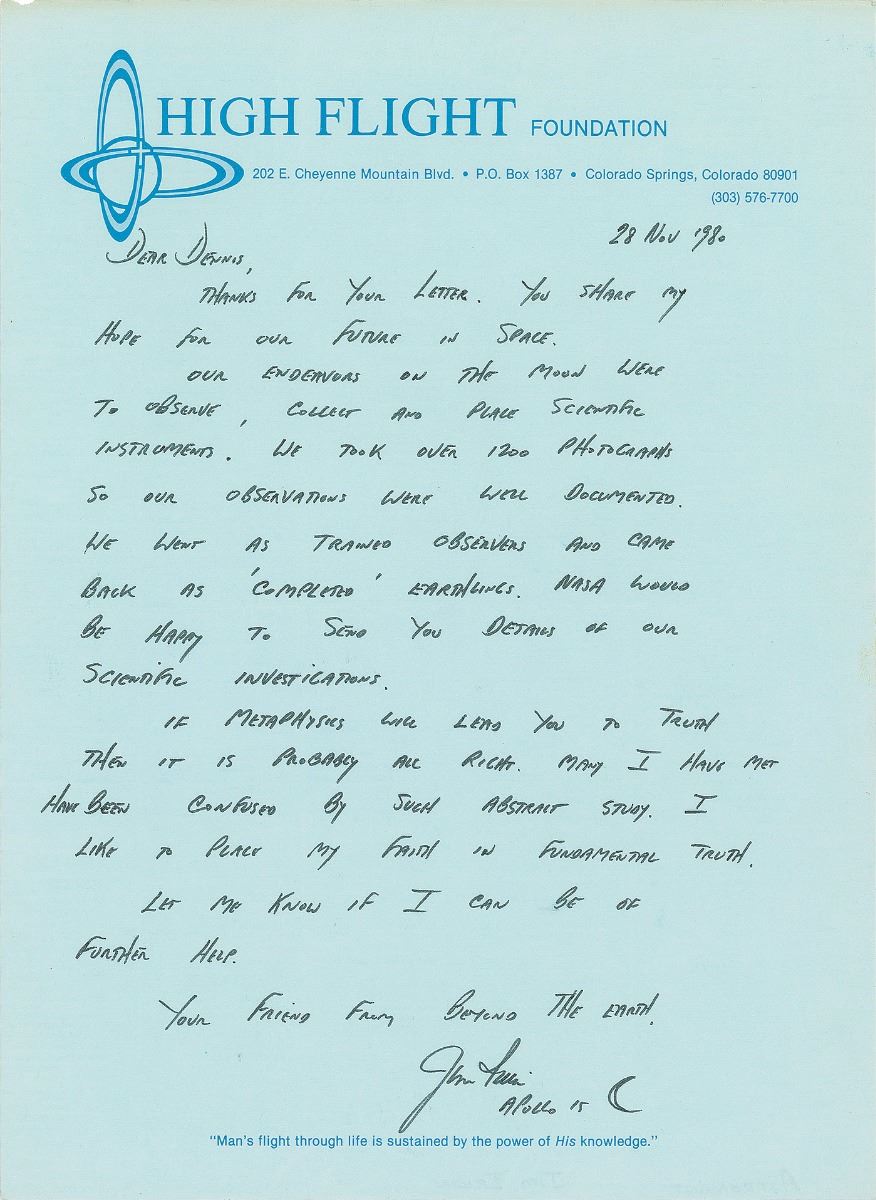 HIGH FLIGHT FOUNDATION
202 E. Cheyenne Mountain Blvd. • P.O. Box 1387 • Colorado Springs, Colorado 80901
(303) 576-7700
28 NOV 1980
DEAR DENNIS,
THANKS FOR YOUR LETTER. YOU SHARE MY
HOPE FOR OUR FUTURE IN SPACE.
OUR ENDEAVORS ON THE MOON WERE
TO OBSERVE, COLLECT AND PLACE SCIENTIFIC
INSTRUMENTS. WE TOOK OVER 1200 PHOTOGRAPHS
SO OUR OBSERVATIONS WERE WELL DOCUMENTED.
WE WENT AS TRAINED OBSERVERS AND CAME
BACK AS 'COMPLETED' EARTHLINGS. NASA WOULD
BE HAPPY TO SEND YOU DETAILS OF OUR
SCIENTIFIC INVESTIGATIONS.
IF METAPHYSICS WILL LEAD YOU TO TRUTH
THEN IT IS PROBABLY ALL RIGHT. MANY I HAVE MET
HAVE BEEN CONFUSED BY SUCH ABSTRACT STUDY. I
LIKE TO PLACE MY FAITH IN FUNDAMENTAL TRUTH.
LET ME KNOW IF I CAN BE OF
FURTHER HELP.
YOUR FRIEND FROM BEYOND THE EARTH.
Jim Irwin
APOLLO 15
"Man's flight through life is sustained by the power of His knowledge."